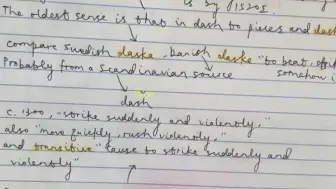 is by 1520s
The oldest sense is that in dash to pieces and dash
compare Swedish daska, Danish daske "to beat,
Probably from a Scandinavian source somehow i
dash
c. 1300, "strike suddenly and violently,"
also "move quickly, rush violently,"
and transitive "cause to strike suddenly and
violently"